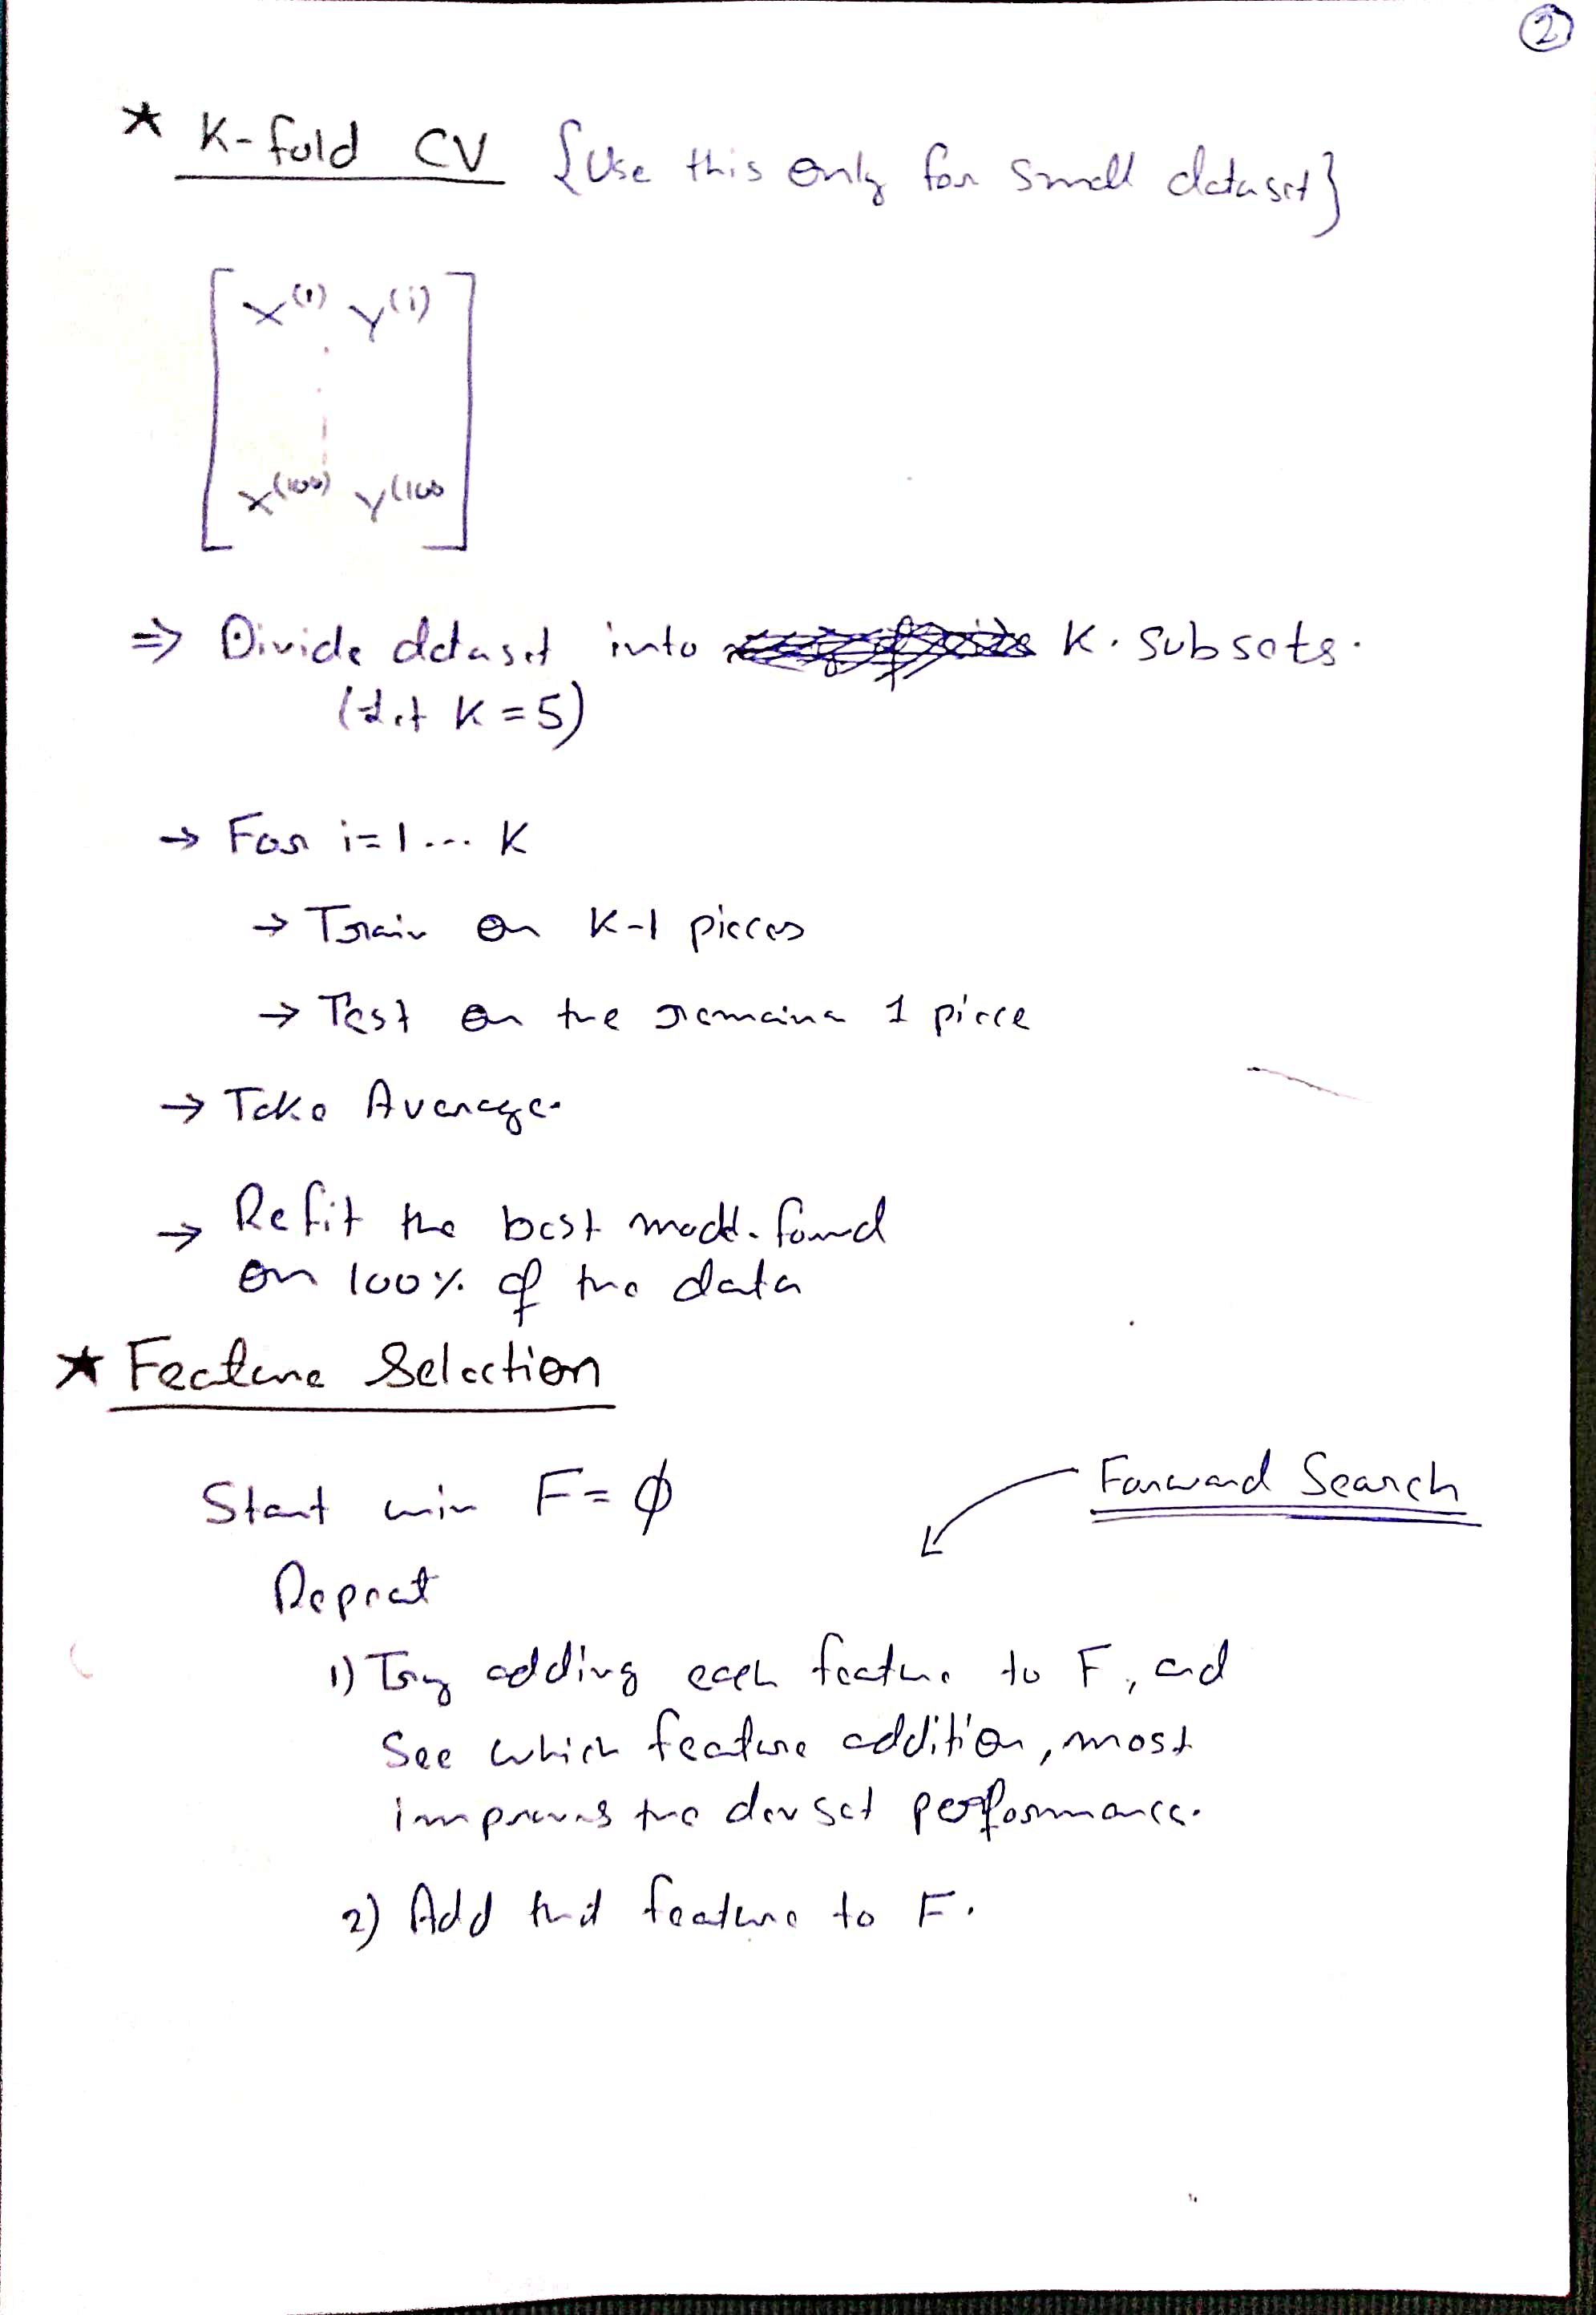 2
* K-fold CV {Use this only for small dataset}
x(1) y(i)
x(100) y(100
⇒ Divide dataset into K. subsets.
(Let K = 5)
→ For i=1... K
→ Train on K-1 pieces
→ Test on the remaina 1 piece
→ Take Average.
→ Refit the best model. found
on 100% of the data
* Feature Selection
Forward Search
Start F = ϕ
Repeat
1) Try adding each feature to F, and
See which feature addition, most
improves the dev set performance.
2) Add that feature to F.